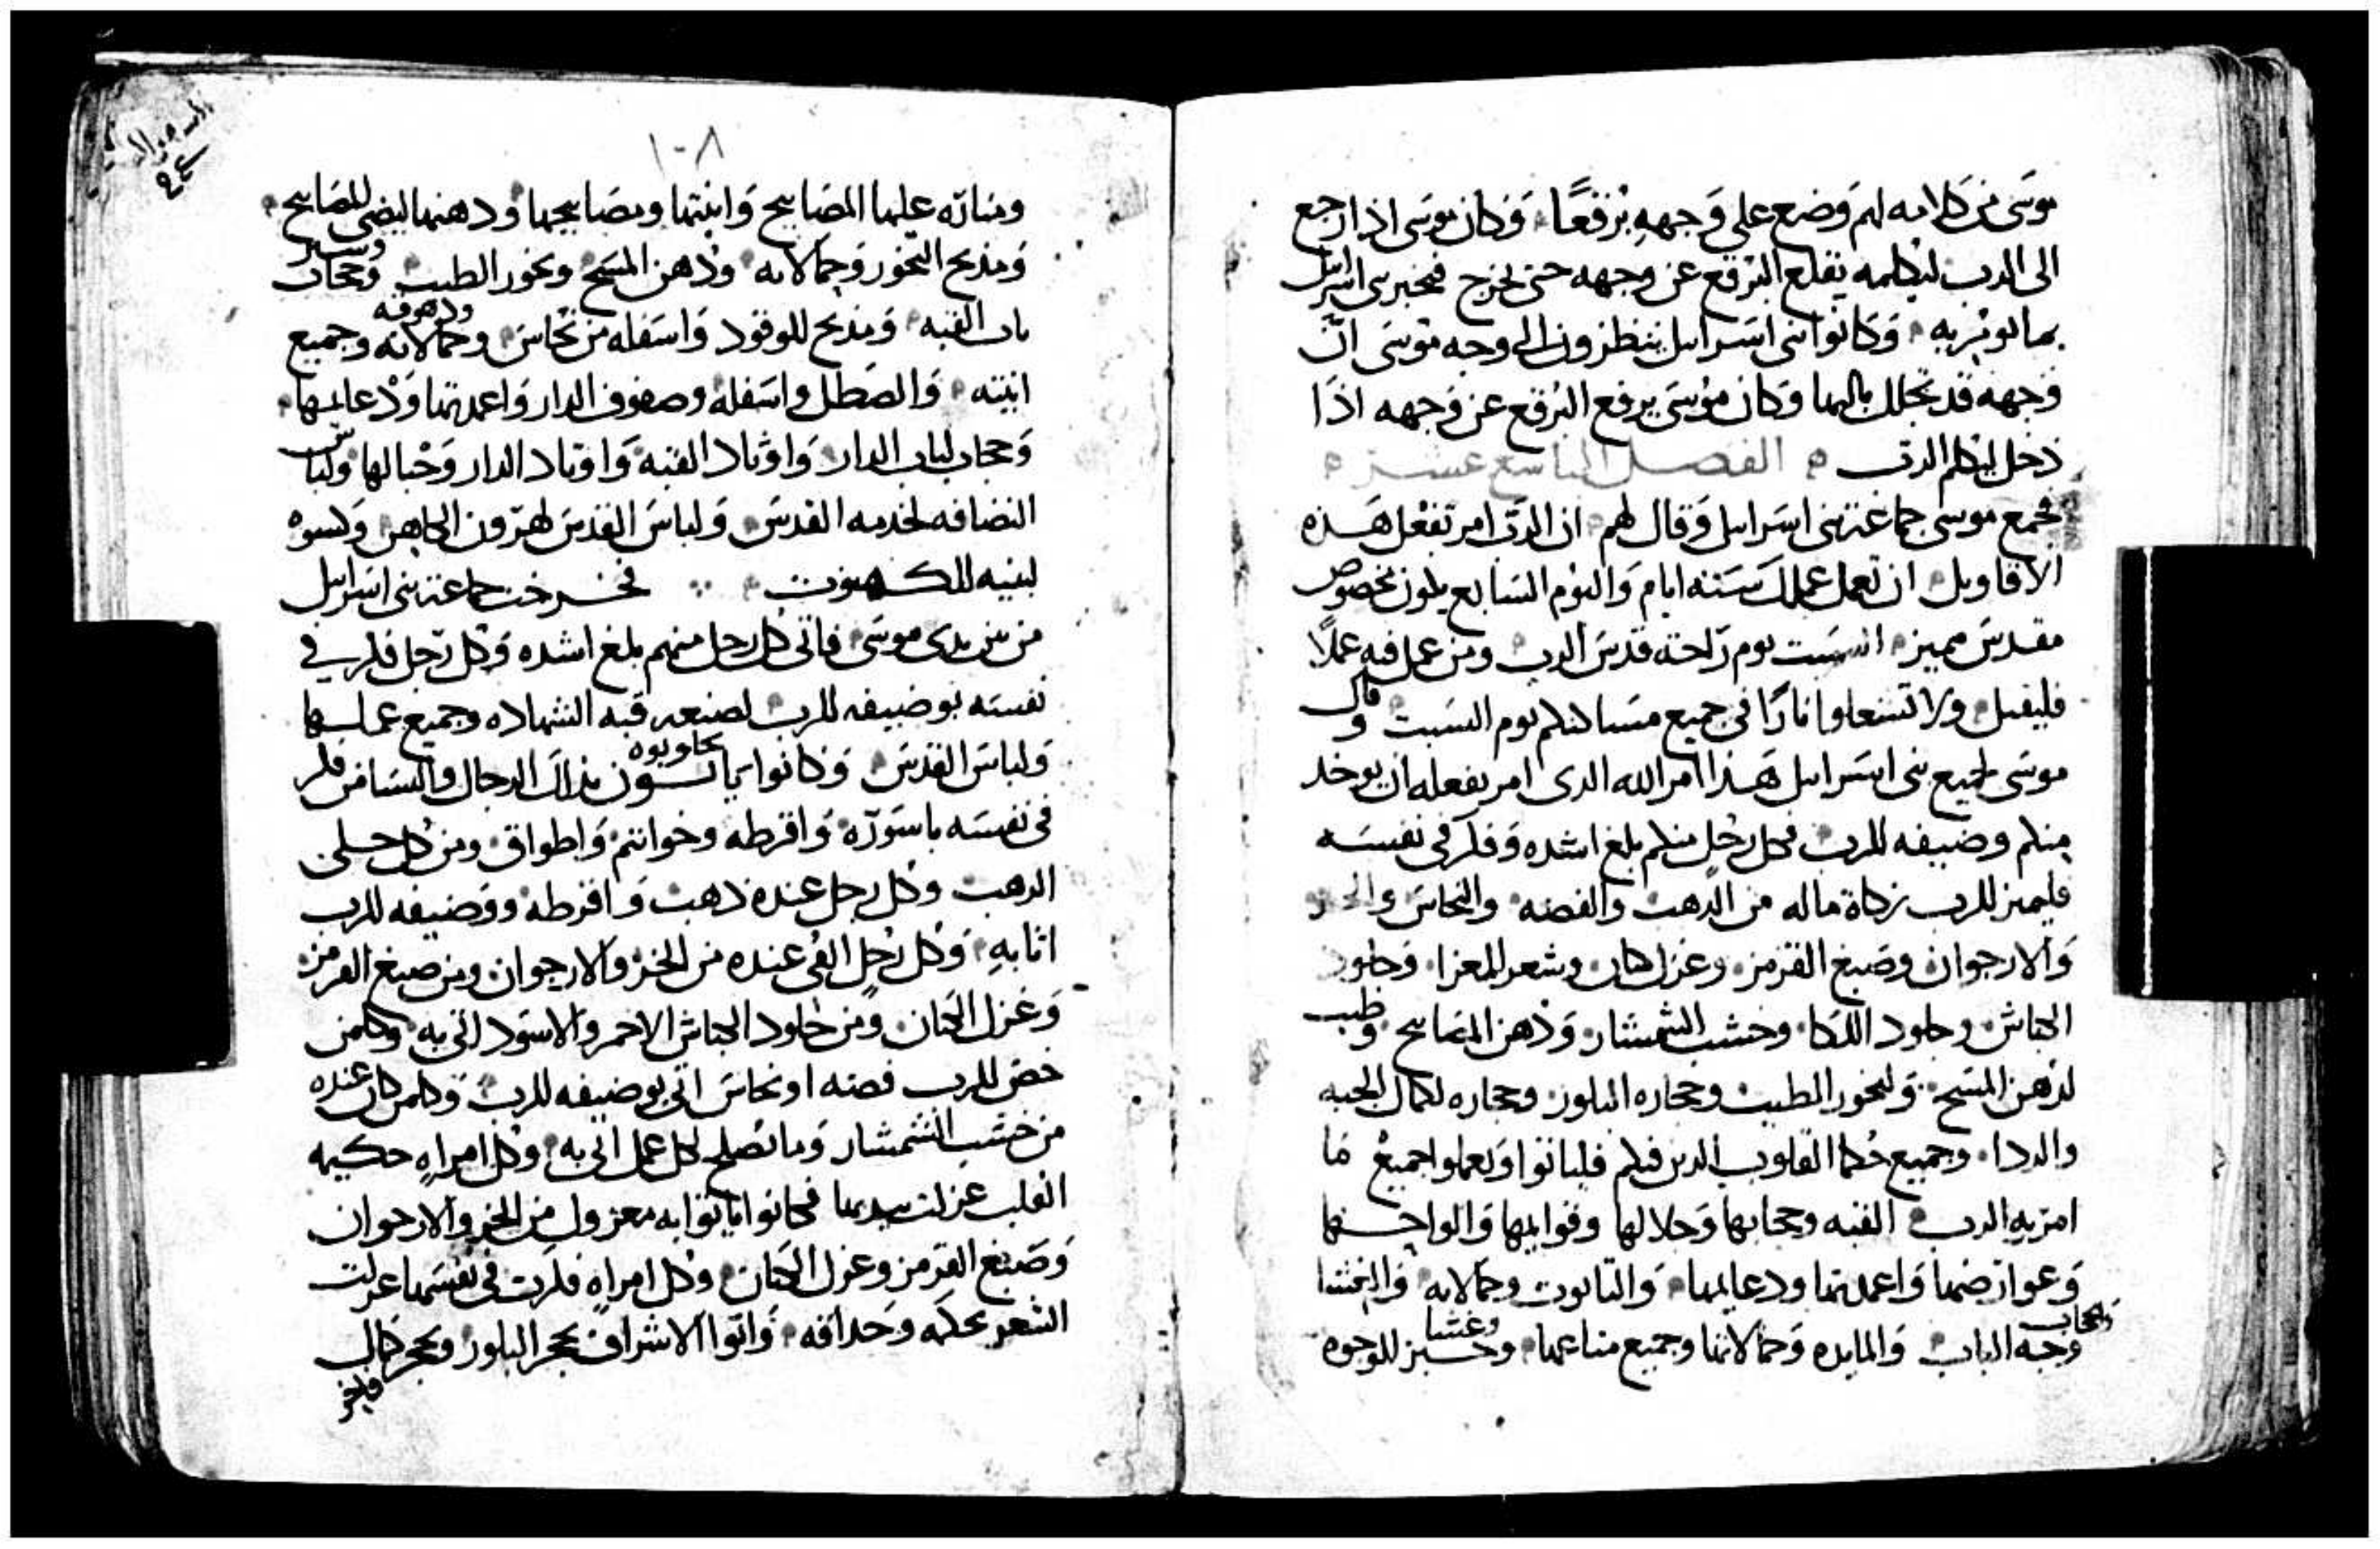 موسى من كلامه لهم وضع على وجهه برقعًا وكان موسى اذا رجع
الى الرب ليكلمه يقلع البرقع عن وجهه حتى يخرج فيخبر بنى اسرايل
بما يومر به وكانوا بنى اسرايل ينظرون الى وجه موسى ان
وجهه قد تجلل بالبها وكان موسى يرفع البرقع عن وجهه اذا
دخل ليكلم الرب الفصل التاسع عشر
فجمع موسى جماعة بنى اسرايل وقال لهم ان الرب امر بفعل هذه
الاقاويل ان تعمل عملك ستة ايام واليوم السابع يكون مخصوص
مقدس مميز السبت يوم راحة قدس الرب ومن عمل فيه عملًا
فليقتل ولا تشعلوا نارًا فى جميع مساكنكم يوم السبت وقال
موسى لجميع بنى اسرايل هذا امر الله الدى امر بفعله ان يوخد
منكم وضيفه للرب فكل رجل منكم بلغ اشده وفكر فى نفسه
فليميز للرب زكاة ماله من الدهب والفضه والنحاس والخز
والارجوان وصبغ القرمز وغزل كتان وشعر المعزا وجلود
الكباش وجلود اللكا وخشب الشمشار ودهن المصابيح وطيب
لدهن المسح ولبخور الطيب وحجاره البلور وحجاره لكمال الجبه
والردا وجميع حكما القلوب الدين فيكم فلياتوا ويعملوا جميع ما
امر به الرب القبه وحجابها وحلالها وقوايمها والواحها
وعوارضها واعمدتها ودعايمها والتابوت وحمالاته والمغشا
والحجاب
وجه الباب والمايده وحمالاتها وجميع متاعها وخبز للوجوه
وغشا
١٠٨
ومناره عليها المصابيح وانيتها ومصابيحها ودهنها ليضى للمصابيح
ومدبح البخور وحمالاته ودهن المسح وبخور الطيب وحجاب وستر
باب القبه ومدبح للوقود واسفله من نحاس وحمالاته ودهوقه وجميع
انيته والصطل واسفله وصفوف الدار واعمدتها ودعايمها
وحجاب لباب الدار واوتاد القبه واوتاد الدار وحبالها ولباس
النضافه لخدمه القدس ولباس القدس لهرون الكاهن وكسوه
لبنيه للكهنوت فخرجت جماعة بنى اسرايل
من بين يدى موسى فاتى كل رجل منهم بلغ اشده وكل رجل فكر في
نفسه بوضيفه للرب لصنعه قبه الشهاده وجميع عملها
ولباس القدس وكانوا ياتون يجاوبوه بداك الرجال والنسا من فكر
فى نفسه باسوره واقرطه وخواتم واطواق ومن كل حلى
الدهب وكل رجل عنده دهب واقرطه ووضيفه للرب
اتا به وكل رجل الفى عنده من الخز والارجوان ومن صبغ القرمز
وغزل الكتان ومن جلود الكباش الاحمر والاسود اتى به وكلمن
خص للرب فضه او نحاس اتى بوضيفه للرب وكلمن كان عنده
من خشب الشمشار وما تصلح لكل عمل اتى به وكل امراه حكيمه
القلب غزلت بيديها فكانوا ياتوا به معزول من الخز والارجوان
وصبغ القرمز وغزل الكتان وكل امراه فكرت فى نفسها غزلت
الشعر بحكمه وحداقه واتوا الاشراف بحجر البلور وبحجر كمال